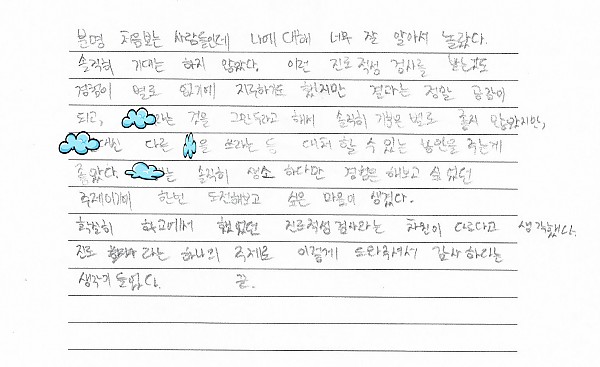 분명 처음보는 사람들인데 나에 대해 너무 잘 알아서 놀랐다.
솔직히 기대는 하지 않았다. 이런 진로적성 검사를 받는것도
경험이 별로 없기에 지루하기도 했지만 결과는 정말 공감이
되고, 라는 것을 그만두라고 해서 솔직히 기분은 별로 좋지 않았지만,
대신 다른 을 쓰라는 등 대처 할 수 있는 방안을 주는게
좋았다. 는 솔직히 생소 하다만 경험은 해보고 싶었던
주제이기에 한번 도전해보고 싶은 마음이 생겼다.
확실히 학교에서 했었던 진로적성검사와는 차원이 다르다고 생각했다.
진로 라는 하나의 주제로 이렇게 도와주셔서 감사하다는
생각이 들었다. 끝.